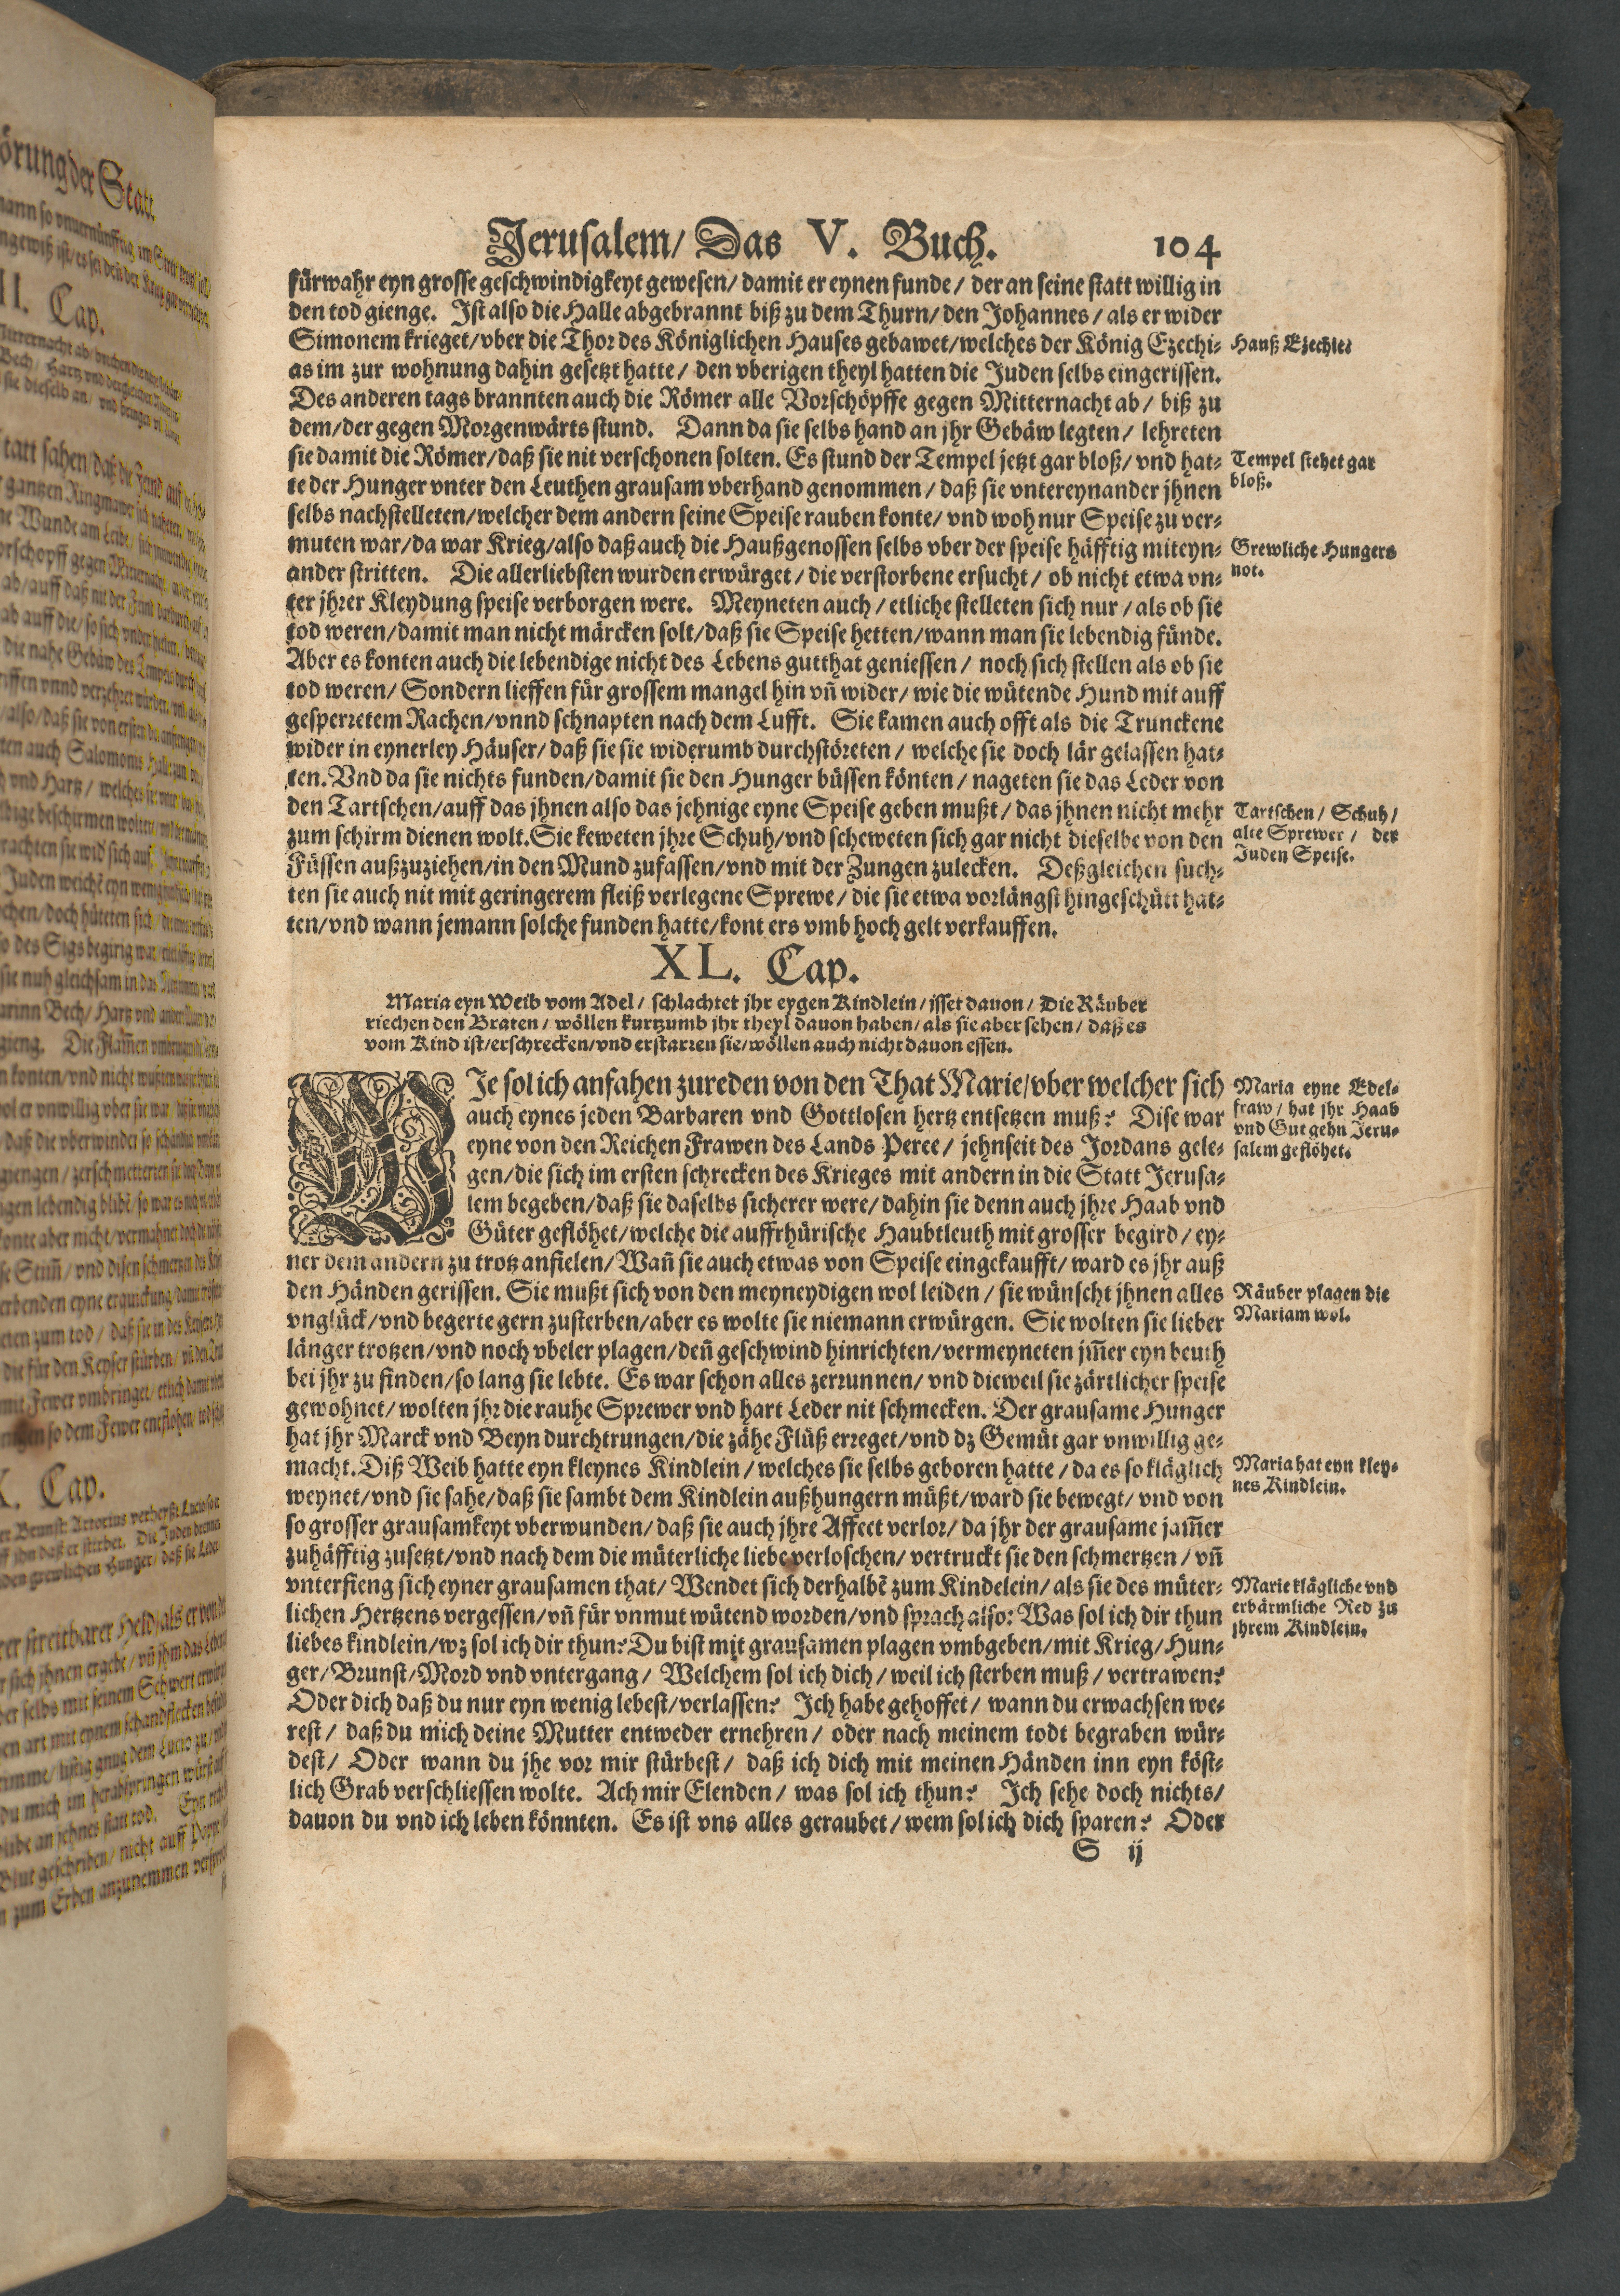 Jerusalem/ Das V. Buch. 104
fürwahr eyn grosse geschwindigkeyt gewesen/ damit er eynen funde/ der an seine statt willig in
den tod gienge. Ist also die Halle abgebrannt biß zu dem Thurn/ den Johannes/ als er wider
Simonem krieget/ vber die Thor des Königlichen Hauses gebawet/ welches der König Ezechi-
as im zur wohnung dahin gesetzt hatte/ den vberigen theyl hatten die Juden selbs eingerissen.
Des anderen tags brannten auch die Römer alle Vorschöpffe gegen Mitternacht ab/ biß zu
dem/ der gegen Morgenwärts stund. Dann da sie selbs hand an jhr Gebäw legten/ lehreten
sie damit die Römer/ daß sie nit verschonen solten. Es stund der Tempel jetzt gar bloß/ vnd hat-
te der Hunger vnter den Leuthen grausam vberhand genommen/ daß sie vntereynander jhnen
selbs nachstelleten/ welcher dem andern seine Speise rauben konte/ vnd woh nur Speise zu ver-
muten war/ da war Krieg/ also daß auch die Haußgenossen selbs vber der speise häfftig miteyn-
ander stritten. Die allerliebsten wurden erwürget/ die verstorbene ersucht/ ob nicht etwa vn-
ter jhrer Kleydung speise verborgen were. Meyneten auch/ etliche stelleten sich nur/ als ob sie
tod weren/ damit man nicht märcken solt/ daß sie Speise hetten/ wann man sie lebendig fünde.
Aber es konten auch die lebendige nicht des Lebens gutthat geniessen/ noch sich stellen als ob sie
tod weren/ Sondern lieffen für grossem mangel hin vñ wider/ wie die wütende Hund mit auff
gesperretem Rachen/ vnnd schnapten nach dem Lufft. Sie kamen auch offt als die Trunckene
wider in eynerley Häuser/ daß sie sie widerumb durchstöreten/ welche sie doch lär gelassen hat-
ten. Vnd da sie nichts funden/ damit sie den Hunger büssen könten/ nageten sie das Leder von
den Tartschen/ auff das jhnen also das jehnige eyne Speise geben mußt/ das jhnen nicht mehr
zum schirm dienen wolt. Sie keweten jhre Schuh/ vnd scheweten sich gar nicht dieselbe von den
Füssen außzuziehen/ in den Mund zufassen/ vnd mit der Zungen zulecken. Deßgleichen such-
ten sie auch nit mit geringerem fleiß verlegene Sprewe/ die sie etwa vorlängst hingeschütt hat-
ten/ vnd wann jemann solche funden hatte/ kont ers vmb hoch gelt verkauffen.
Hauß Ezechie.
Tempel stehet gar
bloß.
Grewliche Hungers
not.
Tartschen/ Schuh/
alte Sprewer/ der
Juden Speise.
XL. Cap.
Maria eyn Weib vom Adel/ schlachtet jhr eygen Kindlein/ isset dauon/ Die Räuber
riechen den Braten/ wöllen kurtzumb jhr theyl dauon haben/ als sie aber sehen/ daß es
vom Kind ist/ erschrecken/ vnd erstarren sie/ wöllen auch nicht dauon essen.
WJe sol ich anfahen zureden von den That Marie/ vber welcher sich
auch eynes jeden Barbaren vnd Gottlosen hertz entsetzen muß? Dise war
eyne von den Reichen Frawen des Lands Peree/ jehnseit des Jordans gele-
gen/ die sich im ersten schrecken des Krieges mit andern in die Statt Jerusa-
lem begeben/ daß sie daselbs sicherer were/ dahin sie denn auch jhre Haab vnd
Güter geflöhet/ welche die auffrhürische Haubtleuth mit grosser begird/ ey-
ner dem andern zu trotz anfielen/ Wañ sie auch etwas von Speise eingekaufft/ ward es jhr auß
den Händen gerissen. Sie mußt sich von den meyneydigen wol leiden/ sie wünscht jhnen alles
vnglück/ vnd begerte gern zusterben/ aber es wolte sie niemann erwürgen. Sie wolten sie lieber
länger trotzen/ vnd noch vbeler plagen/ deñ geschwind hinrichten/ vermeyneten jm̃er eyn beuth
bei jhr zu finden/ so lang sie lebte. Es war schon alles zerrunnen/ vnd dieweil sie zärtlicher speise
gewohnet/ wolten jhr die rauhe Sprewer vnd hart Leder nit schmecken. Der grausame Hunger
hat jhr Marck vnd Beyn durchtrungen/ die zähe Flüß erreget/ vnd dz Gemüt gar vnwillig ge-
macht. Diß Weib hatte eyn kleynes Kindlein/ welches sie selbs geboren hatte/ da es so kläglich
weynet/ vnd sie sahe/ daß sie sambt dem Kindlein außhungern müßt/ ward sie bewegt/ vnd von
so grosser grausamkeyt vberwunden/ daß sie auch jhre Affect verlor/ da jhr der grausame jam̃er
zuhäfftig zusetzt/ vnd nach dem die müterliche liebe verloschen/ vertruckt sie den schmertzen/ vñ
vnterfieng sich eyner grausamen that/ Wendet sich derhalbẽ zum Kindelein/ als sie des müter-
lichen Hertzens vergessen/ vñ für vnmut wütend worden/ vnd sprach also: Was sol ich dir thun
liebes kindlein/ wz sol ich dir thun? Du bist mit grausamen plagen vmbgeben/ mit Krieg/ Hun-
ger/ Brunst/ Mord vnd vntergang/ Welchem sol ich dich/ weil ich sterben muß/ vertrawen?
Oder dich daß du nur eyn wenig lebest/ verlassen? Ich habe gehoffet/ wann du erwachsen we-
rest/ daß du mich deine Mutter entweder ernehren/ oder nach meinem todt begraben wür-
dest/ Oder wann du jhe vor mir stürbest/ daß ich dich mit meinen Händen inn eyn köst-
lich Grab verschliessen wolte. Ach mir Elenden/ was sol ich thun? Ich sehe doch nichts/
dauon du vnd ich leben könnten. Es ist vns alles geraubet/ wem sol ich dich sparen? Oder
S ij
Maria eyne Edel-
fraw/ hat jhr Haab
vnd Gut gehn Jeru-
salem geflöhet.
Räuber plagen die
Mariam wol.
Maria hat eyn kley-
nes Kindlein.
Marie klägliche vnd
erbärmliche Red zu
jhrem Kindlein.